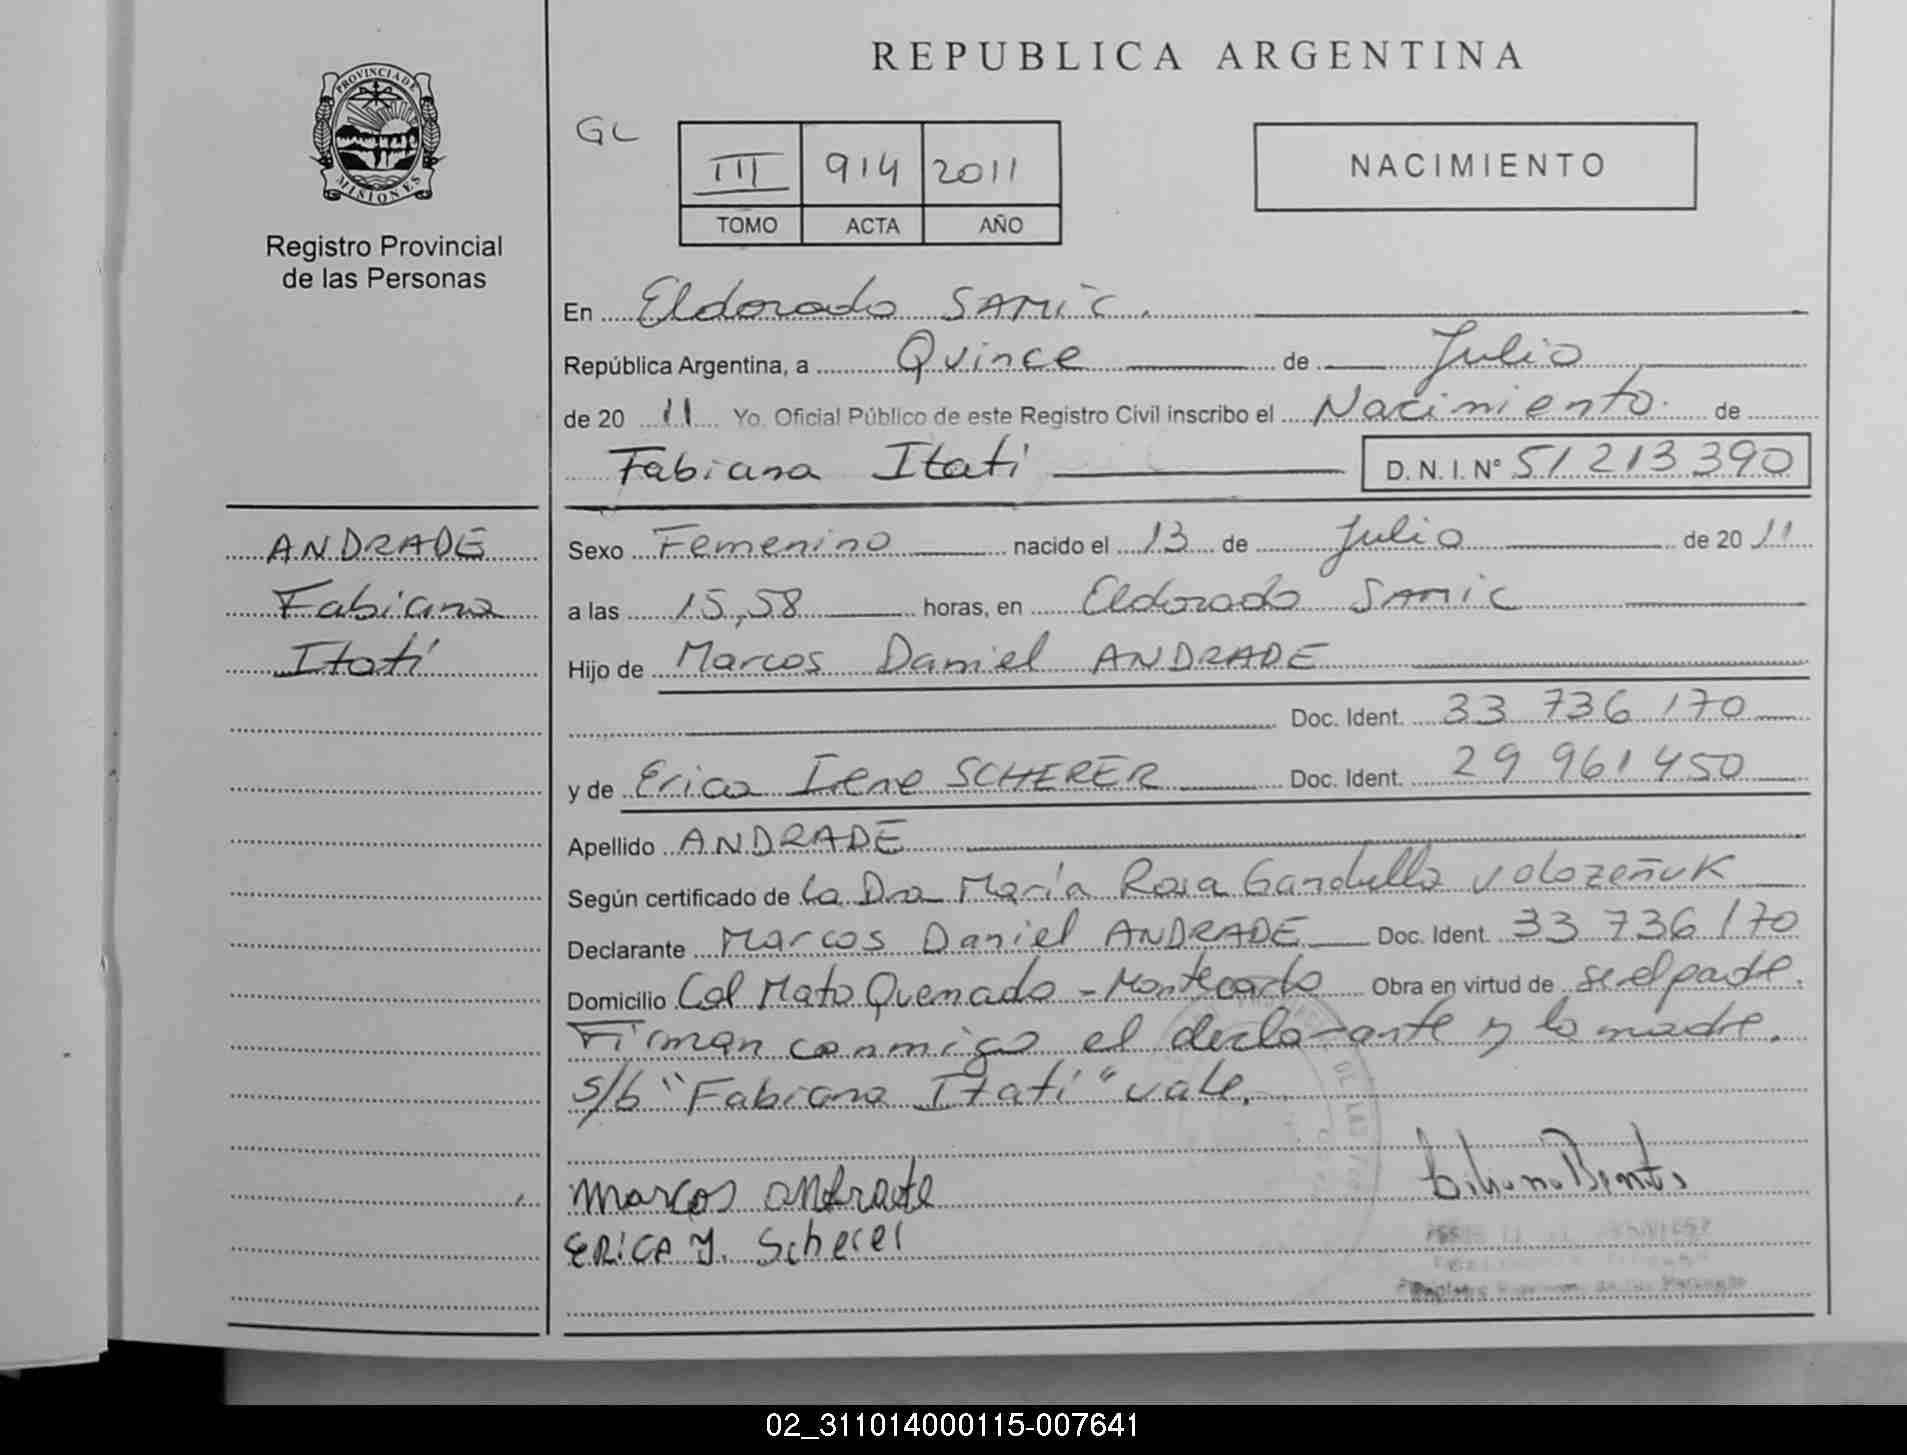 REPUBLICA ARGENTINA
PROVINCIA DE
MISIONES
Registro Provincial
de las Personas
GL
III 914 2011
TOMO ACTA AÑO
NACIMIENTO
En Eldorado SAMIC.
República Argentina, a Quince de Julio
de 20 11 Yo. Oficial Público de este Registro Civil inscribo el Nacimiento de
Fabiana Itatí D.N.I.Nº 51 213 390
ANDRADE
Fabiana
Itatí
Sexo Femenino nacido el 13 de Julio de 20 11
a las 15,58 horas, en Eldorado SAMIC
Hijo de Marcos Daniel ANDRADE
Doc. Ident. 33 736 170
y de Erica Irene SCHERER Doc. Ident. 29 961 450
Apellido ANDRADE
Según certificado de la Dra María Rosa
Declarante Marcos Daniel ANDRADE Doc. Ident. 33 736 170
Domicilio Col Mato Quemado - Montecarlo Obra en virtud de se el padre.
Firman conmigo el declarante y la madre.
s/b "Fabiana Itatí" vale.
Marcos andrade
ERICA I. Scherer
02_311014000115-007641